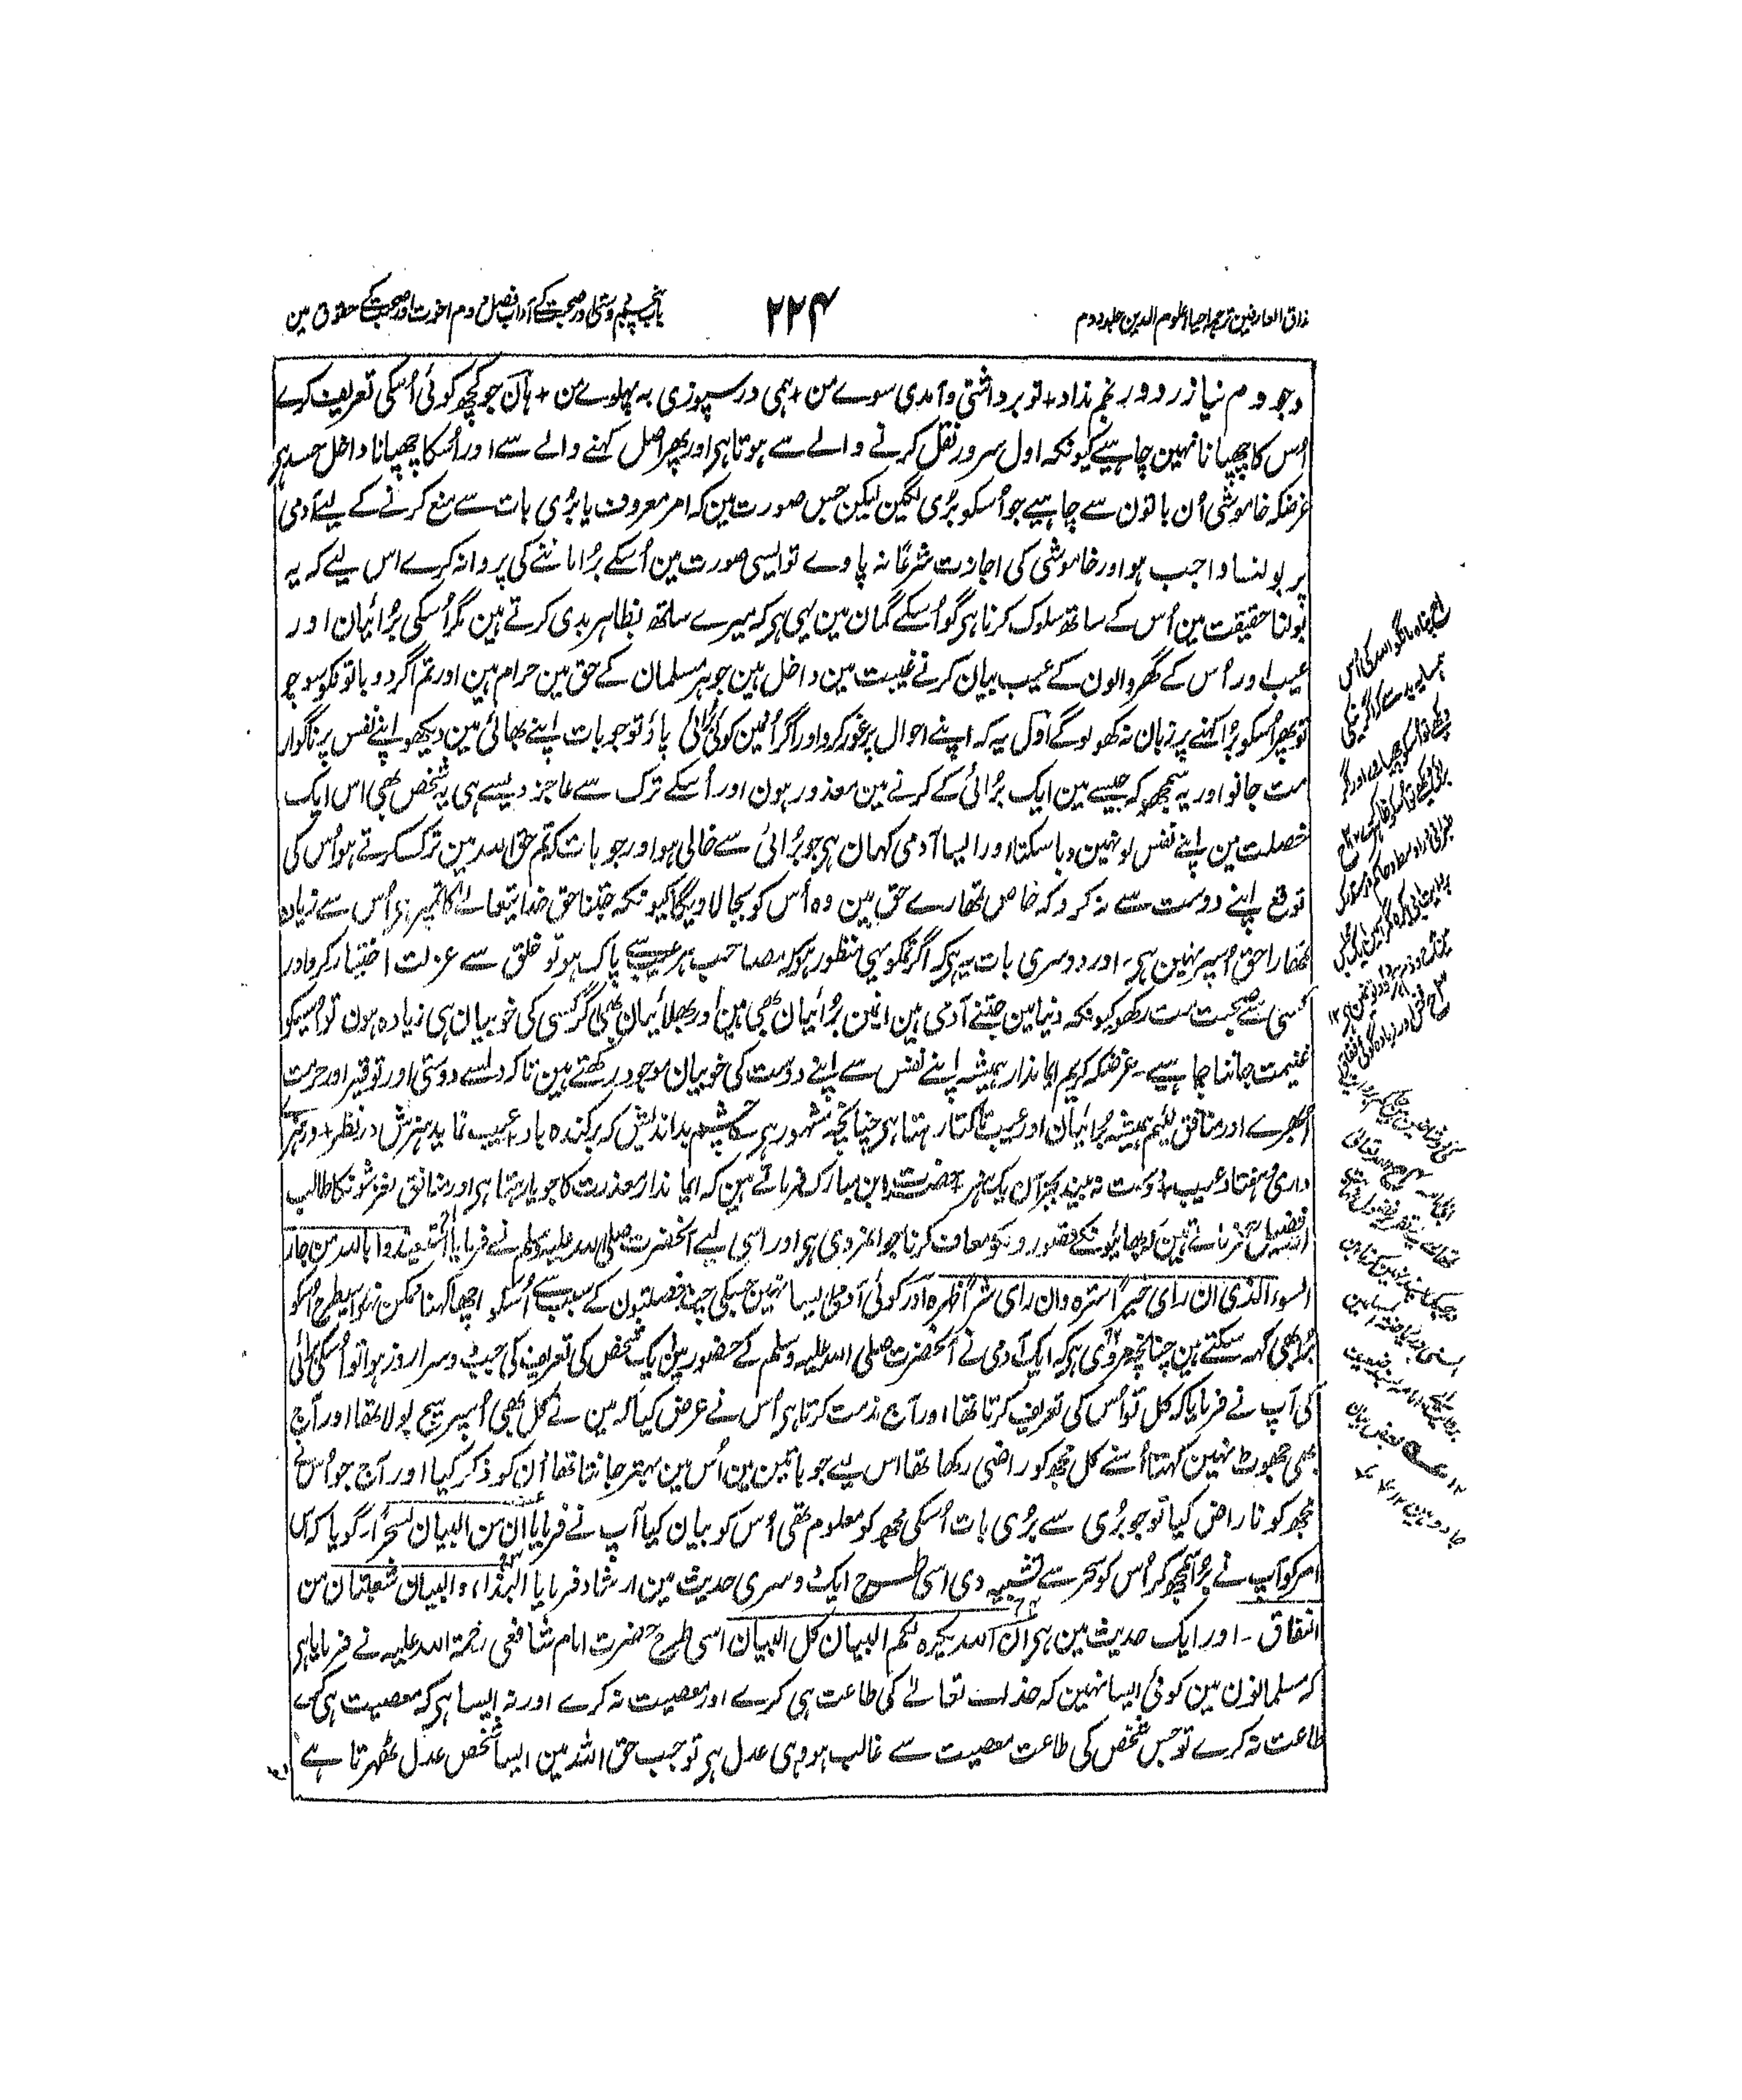 مذاق العارفین ترجمہ احیاء علوم الدین جلد دوم
۲۲۴
باب پنجم دوستی اور صحبت کے آداب فصل دوم اخوت اور صحبت کے حقوق مین
وجودم نیازرد ورنجم نداد + تو برداشتی وآمدی سوے من + ہمی درسپوزی بہ پہلوے من + ہان جو کچھ کوئی اُسکی تعریف کرے
اُس کا چھپانا نہین چاہیے کیونکہ اول سرور نقل کرنے والے سے ہوتا ہی اور پھر اصل کہنے والے سے اور اُسکا چھپانا داخل حسد ہی
غرضکہ خاموشی اُن باتون سے چاہیے جو اُسکو بُری لگین لیکن جس صورت مین کہ امر معروف یا بُری بات سے منع کرنے کے لیے آدمی
پر بولنا واجب ہو اور خاموشی کی اجازت شرعًا نہ پاوے تو ایسی صورت مین اُسکے بُرا ماننے کی پروا نہ کرے اس لیے کہ یہ
بولنا حقیقت مین اُس کے ساتھ سلوک کرنا ہی گو اُسکے گمان مین یہی ہی کہ میرے ساتھ بظاہر بدی کرتے ہین مگر اُسکی بُرائیان اور
عیب اور اُس کے گھر والون کے عیب بیان کرنے غیبت مین داخل ہین جو ہر مسلمان کے حق مین حرام ہین اور تم اگر دو باتونکو سوچو
تو پھر اُسکو بُرا کہنے پر زبان نہ کھولوگے اوّل یہ کہ اپنے احوال پر غور کرو اور اگر اُنمین کوئی بُرائی پاؤ تو جو بات اپنے بھائی مین دیکھو اپنے نفس پر ناگوار
مت جانو اور یہ سمجھو کہ جیسے مین ایک بُرائی کے کرنے مین معذور ہون اور اُسکے ترک سے عاجز ویسے ہی یہ شخص بھی اس ایک
خصلت مین اپنے نفس کو نہین دبا سکتا اور ایسا آدمی کہان ہی جو بُرائی سے خالی ہو اور جو بات کہ تم حق اللہ مین ترک کرتے ہو اُس کی
توقع اپنے دوست سے نہ کرو کہ خاص تمھارے حق مین وہ اُس کو بجا لاویگا کیونکہ جتنا حق خدایتعالےٰ کا تمپر ہی اُس سے زیادہ
تمھارا حق اُسپر نہین ہی ۔ اور دوسری بات یہ ہی کہ اگر تمکو یہی منظور ہو کہ مصاحب ہر عیب سے پاک ہو تو خلق سے عزلت اختیار کرو اور
کسی سے صحبت مت رکھو کیونکہ دنیا مین جتنے آدمی ہین انمین بُرائیان بھی ہین اور بھلائیان بھی اگر کسی کی خوبیان ہی زیادہ ہون تو اُسیکو
غنیمت جاننا چاہیے ۔ غرضکہ کریم ایماندار ہمیشہ اپنے نفس سے اپنے دوست کی خوبیان موجود رکھتے ہین تاکہ دلسے دوستی اور توقیر اور حرمت
اُبھرے اور منافق لئیم ہمیشہ بُرائیان اور عیب تاکتا رہتا ہی چنانچہ مشہور ہی کہ چشم بد اندیش کہ برکندہ باد + عیب نماید ہنرش در نظر + ور ہنر
داری وہفتاد عیب + دوست نہ بیند بجز آن یک ہنر + حضرت ابن مبارک فرماتے ہین کہ ایماندار معذرت کا جویا رہتا ہی اور منافق لغزشونکا طالب
فضیل فرماتے ہین کہ بھائیونکے قصورونکو معاف کرنا جوانمردی ہی اور اسی لیے آنحضرت صلی اللہ علیہ وسلم نے فرمایا استعیذوا باللہ من جار
السوء الذی ان رای خیراً استرہ وان رای شراً اظہرہ اور کوئی آدمی ایسا نہین جسکی چند خصلتون کے سبب سے اُسکو اچھا کہنا ممکن نہو اسیطرح اُسکو
بُرا بھی کہہ سکتے ہین چنانچہ مروی ہی کہ ایک آدمی نے آنحضرت صلی اللہ علیہ وسلم کے حضور مین ایک شخص کی تعریف کی جب دوسرا روز ہوا تو اُسکی برائی
کی آپ نے فرمایا کہ کل تو اُس کی تعریف کرتا تھا اور آج مذمت کرتا ہی اُس نے عرض کیا کہ مین نے کل بھی اُسپر سچ بولا تھا اور آج
بھی جھوٹ نہین کہتا اُسنے کل مجھ کو راضی رکھا تھا اس لیے جو باتین مین اُس مین بہتر جانتا تھا اُن کو ذکر کیا اور آج جو اُس نے
مجھ کو ناراض کیا تو جو بُری سے بُری بات اُسکی مجھ کو معلوم تھی اُس کو بیان کیا آپ نے فرمایا ان من البیان لسحرا ۔ گویا کہ اس
امر کو آپ نے بُرا سمجھ کر اُس کو سحر سے تشبیہ دی اسی طرح ایک دوسری حدیث مین ارشاد فرمایا البذاء والبیان شعبتان من
النفاق ۔ اور ایک حدیث مین ہی ان اللہ یکرہ لکم البیان کل البیان اسی طرح حضرت امام شافعی رحمۃ اللہ علیہ نے فرمایا ہی
کہ مسلمانون مین کوئی ایسا نہین کہ خداے تعالےٰ کی طاعت ہی کرے اور معصیت نہ کرے اور نہ ایسا ہی کہ معصیت ہی کرے
طاعت نہ کرے تو جس شخص کی طاعت معصیت سے غالب ہو وہی عدل ہی تو جب حق اللہ مین ایسا شخص عدل ٹھہرتا ہے
پناہ مانگو اللہ کی اُس
ہمسایہ بد سے کہ اگر نیکی
دیکھے تو اسکو چھپاوے اور اگر